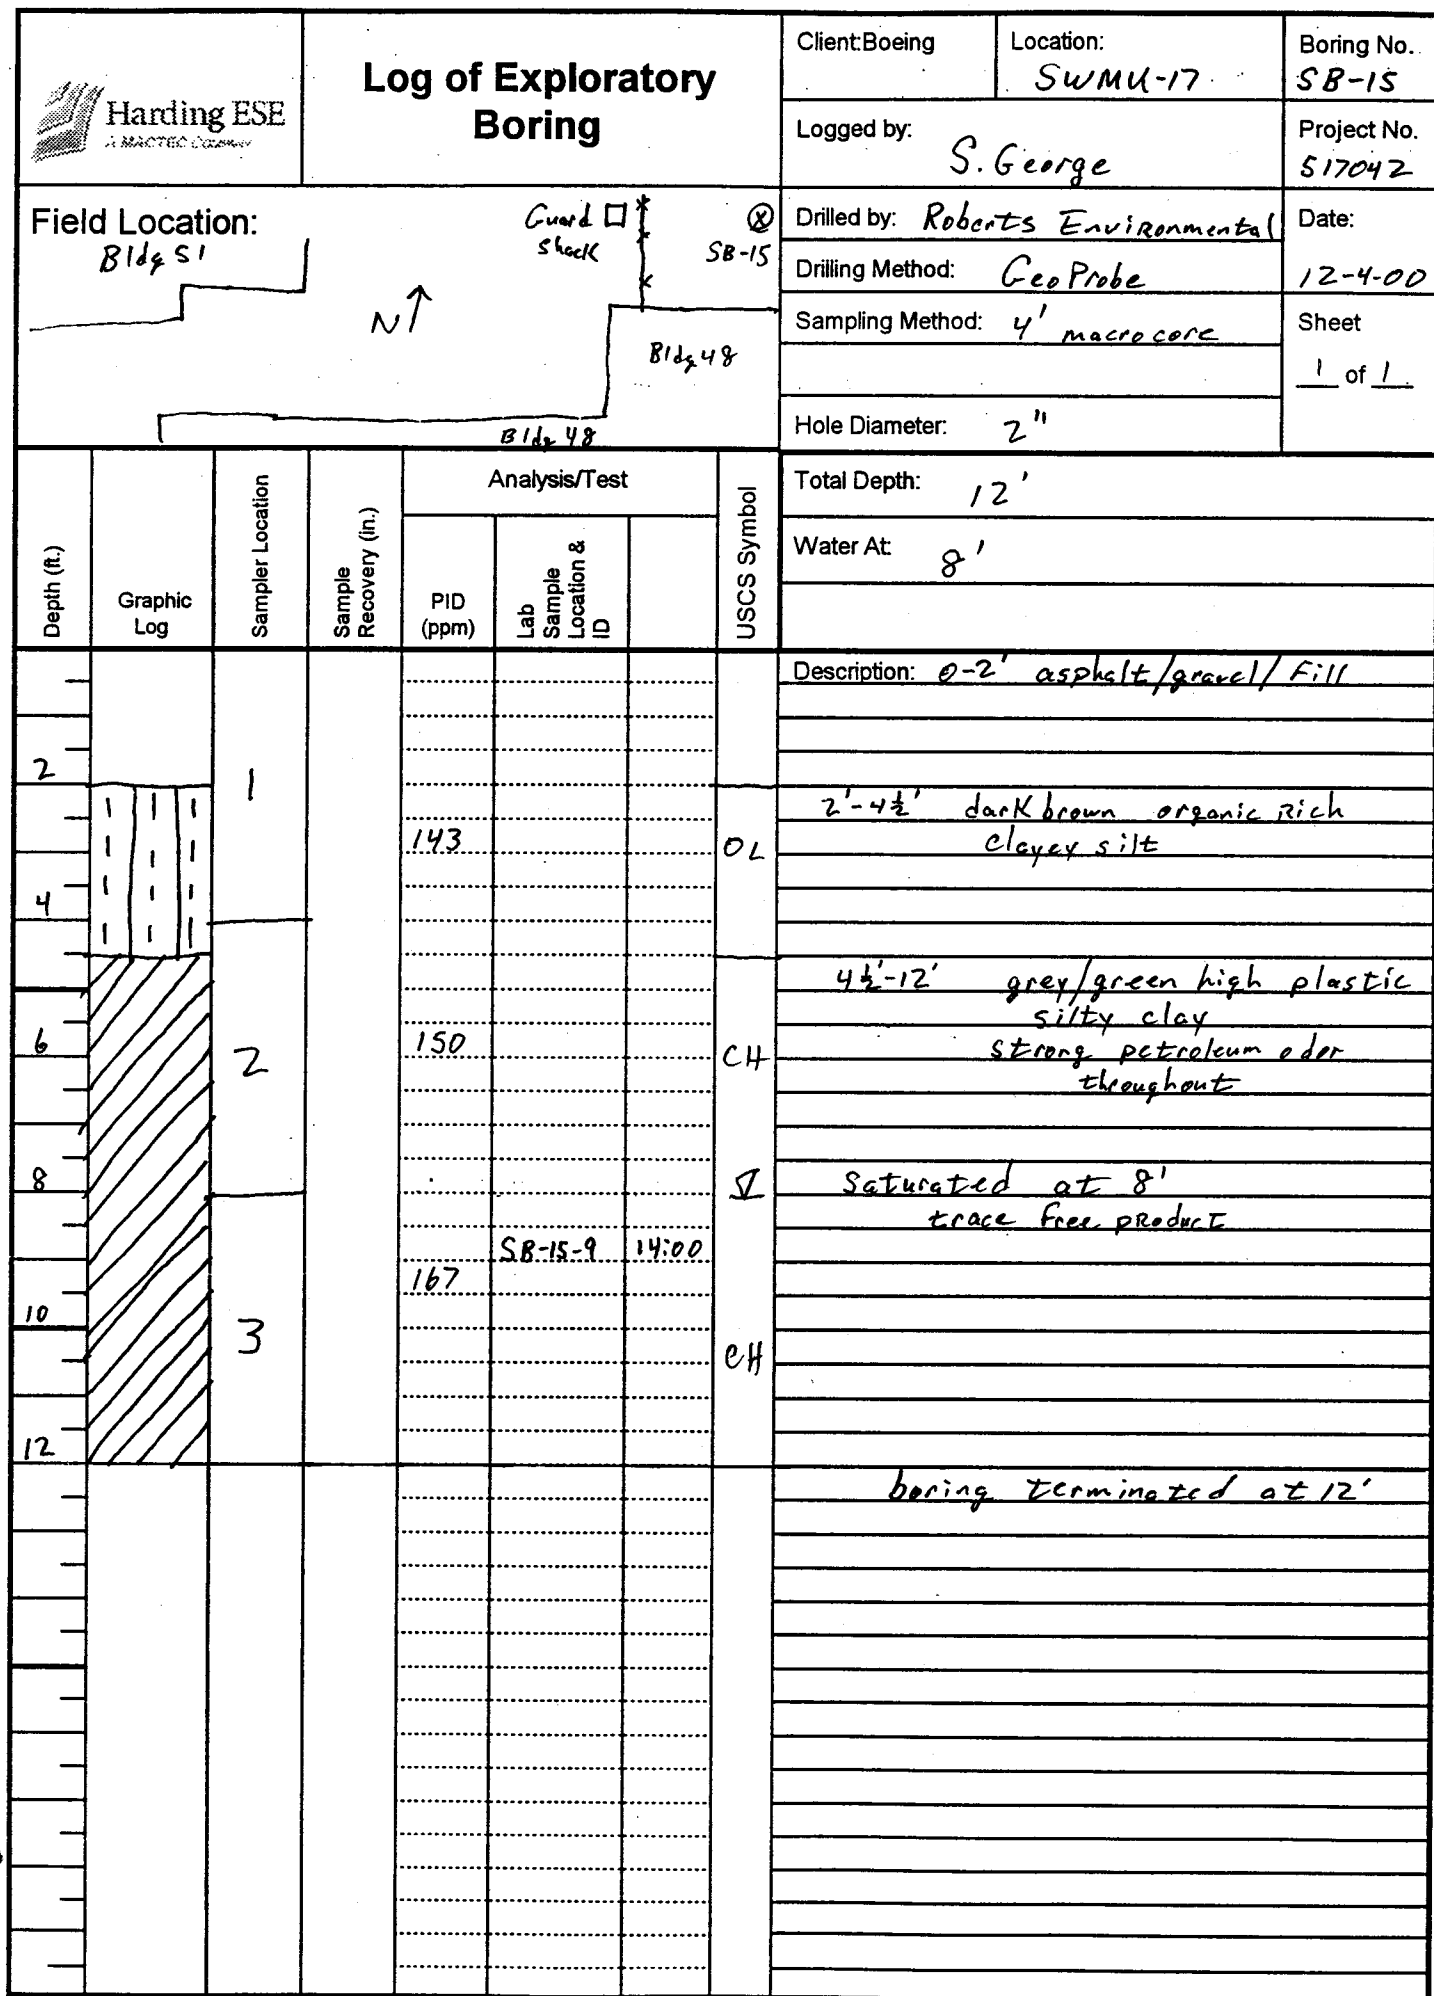 Harding ESE
A MACTEC COMPANY
Log of Exploratory
Boring
Client:Boeing
Location:
SWMU-17
Boring No.
SB-15
Logged by:
S. George
Project No.
517042
Field Location:
Bldg 51
Guard
Shack
SB-15
N
Bldg 48
Bldg 48
Drilled by: Roberts Environmental
Date:
12-4-00
Drilling Method: GeoProbe
Sampling Method: 4' macrocore
Sheet
1 of 1
Hole Diameter: 2"
Depth (ft.)
Graphic
Log
Sampler Location
Sample
Recovery (in.)
Analysis/Test
PID
(ppm)
Lab
Sample
Location &
ID
USCS Symbol
Total Depth: 12'
Water At: 8'
Description: 0-2' asphalt/gravel/Fill
2
1
2'-4½' dark brown organic Rich
143
OL
clayey silt
4
4½'-12' grey/green high plastic
silty clay
6
2
150
CH
strong petroleum odor
throughout
8
Saturated at 8'
trace free product
SB-15-9 14:00
167
10
3
CH
12
boring terminated at 12'